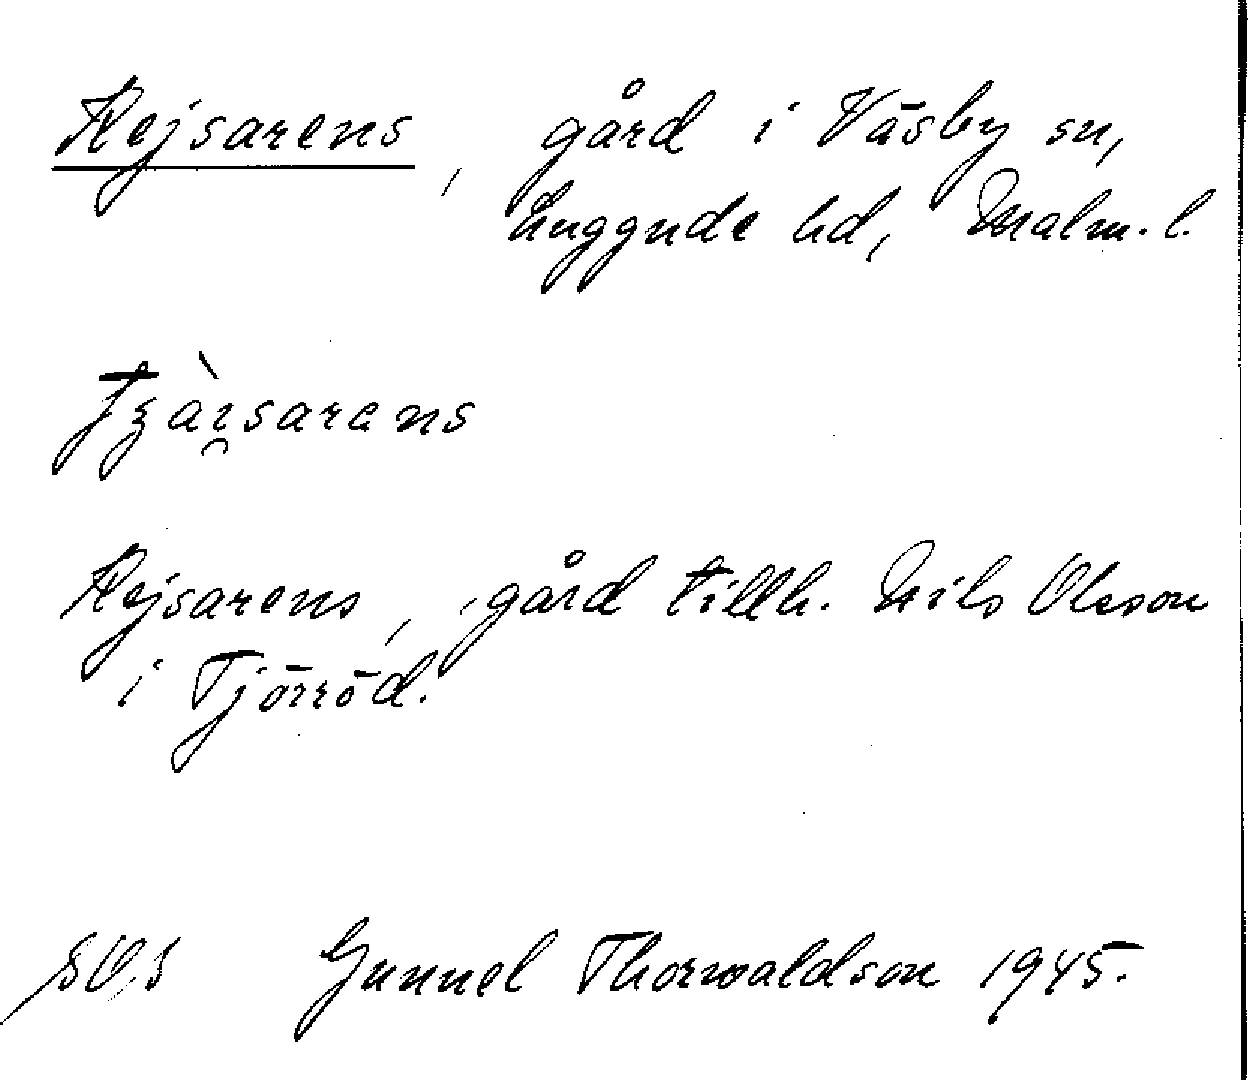 Kejsarens, gård i Väsby sn,
Luggude hd, Malm. l.
Kejsarens, gård tillh. Nils Olsson
i Tjörröd.
Gunnel Thorwaldson 1945.